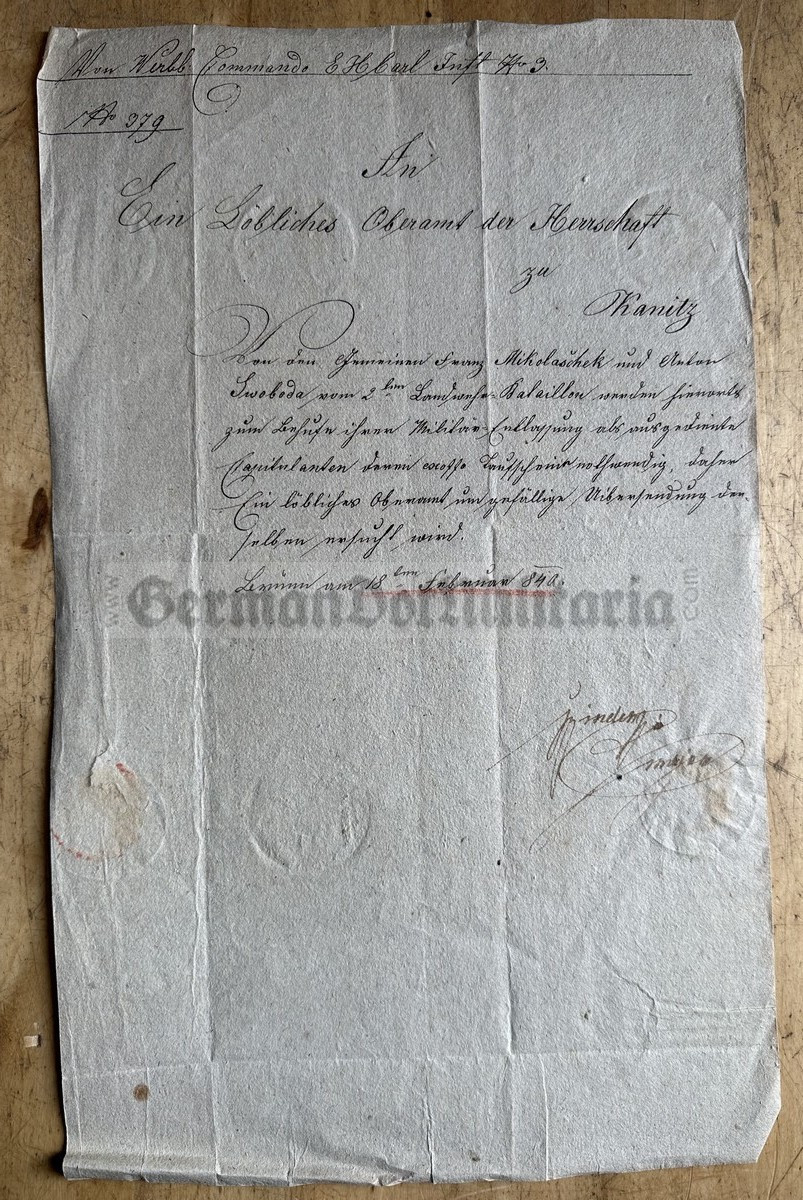 Von Werbb Commando EHCarl Inft No 3.
No 379
An
Ein Löbliches Oberamt der Herrschaft
zu
Kanitz
Von den Gemeinen Franz Mikolaschek und Anton
Swoboda vom 2ten Landwehr-Bataillon werden hierorts
zum Behufe ihrer Militär-Entlassung als ausgediente
Capitulanten deren exoffo Taufscheine nothwendig, daher
Ein löbliches Oberamt um gefällige Uibersendung der-
selben ersucht wird.
Brünn am 18ten Februar 840.
www.GermanDortmunitaria.com